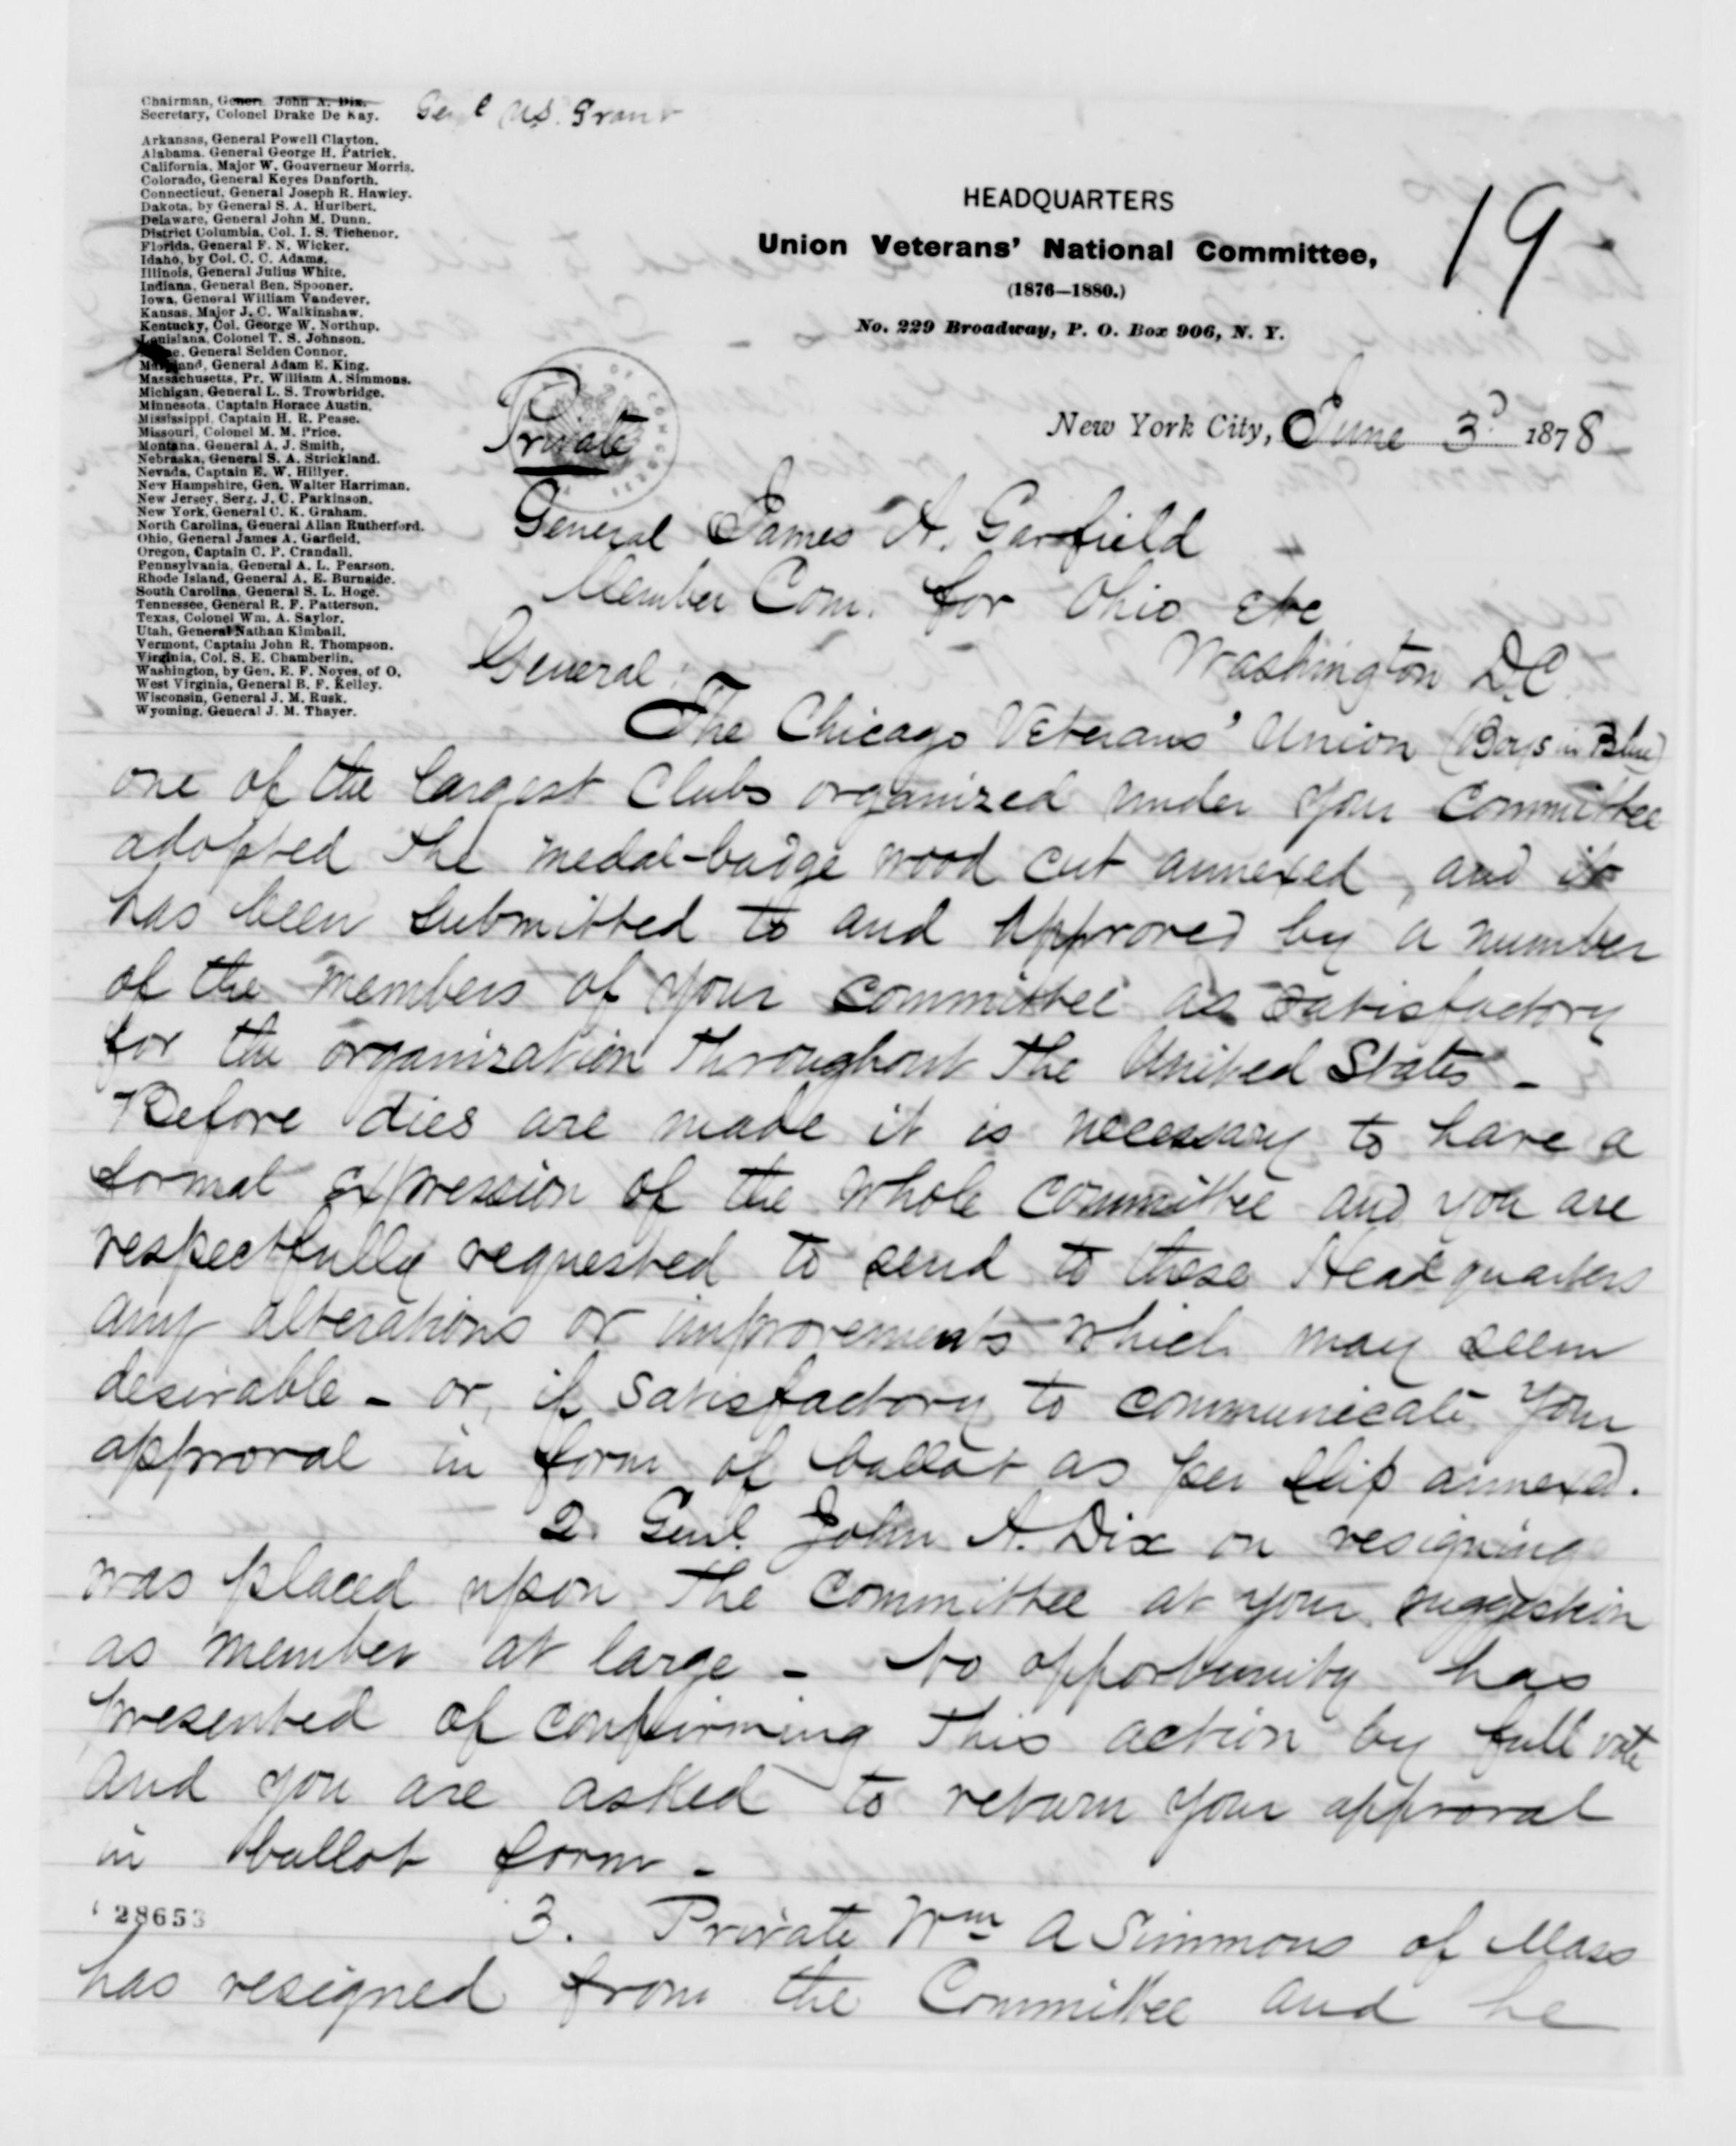 Chairman, Genera John A. Dix.
Secretary, Colonel Drake De Kay.
Gen'l U.S. Grant
Arkansas, General Powell Clayton.
Alabama. General George H. Patrick.
California, Major W. Gouverneur Morris.
Colorado, General Keyes Danforth.
Connecticut, General Joseph R. Hawley.
Dakota, by General S. A. Hurlbert.
Delaware, General John M. Dunn.
District Columbia, Col. I. S. Tichenor.
Florida, General F. N. Wicker.
Idaho, by Col. C. C. Adams.
Illinois, General Julius White.
Indiana, General Ben. Spooner.
Iowa, General William Vandever.
Kansas, Major J. C. Walkinshaw.
Kentucky, Col. George W. Northup.
Louisiana, Colonel T. S. Johnson.
Maine, General Selden Connor.
Maryland, General Adam E. King.
Massachusetts, Pr. William A. Simmons.
Michigan, General L. S. Trowbridge.
Minnesota, Captain Horace Austin.
Mississippi, Captain H. R. Pease.
Missouri, Colonel M. M. Price.
Montana, General A. J. Smith,
Nebraska, General S. A. Strickland.
Nevada, Captain E. W. Hillyer.
New Hampshire, Gen. Walter Harriman.
New Jersey, Serg. J. C. Parkinson.
New York, General C. K. Graham.
North Carolina, General Allan Rutherford.
Ohio, General James A. Garfield.
Oregon, Captain C. P. Crandall.
Pennsylvania, General A. L. Pearson.
Rhode Island, General A. E. Burnside.
South Carolina, General S. L. Hoge.
Tennessee, General R. F. Patterson.
Texas, Colonel Wm. A. Saylor.
Utah, General Nathan Kimball.
Vermont, Captain John R. Thompson.
Virginia, Col. S. E. Chamberlin.
Washington, by Gen. E. F. Noyes, of O.
West Virginia, General B. F. Kelley.
Wisconsin, General J. M. Rusk.
Wyoming, General J. M. Thayer.
HEADQUARTERS
Union Veterans' National Committee,
(1876—1880.)
No. 229 Broadway, P. O. Box 906, N. Y.
19
Private
New York City, June 3d 1878
General James A. Garfield
Member Com. for Ohio etc
Washington D.C.
General:
The Chicago Veterans' Union (Boys in Blue)
one of the largest Clubs organized under your Committee
adopted the medal-badge wood cut annexed, and it
has been submitted to and approved by a number
of the members of your committee as satisfactory
for the organization throughout the United States -
Before dies are made it is necessary to have a
formal expression of the whole committee and you are
respectfully requested to send to these Headquarters
any alterations or improvements which may seem
desirable - or, if satisfactory to communicate your
approval in form of ballot as per slip annexed.
2. Genl. John A. Dix on resigning
was placed upon the committee at your suggestion
as member at large - No opportunity has
presented of confirming this action by full vote
and you are asked to return your approval
in ballot form -
28653
3. Private Wm A Simmons of Mass
has resigned from the Committee and he